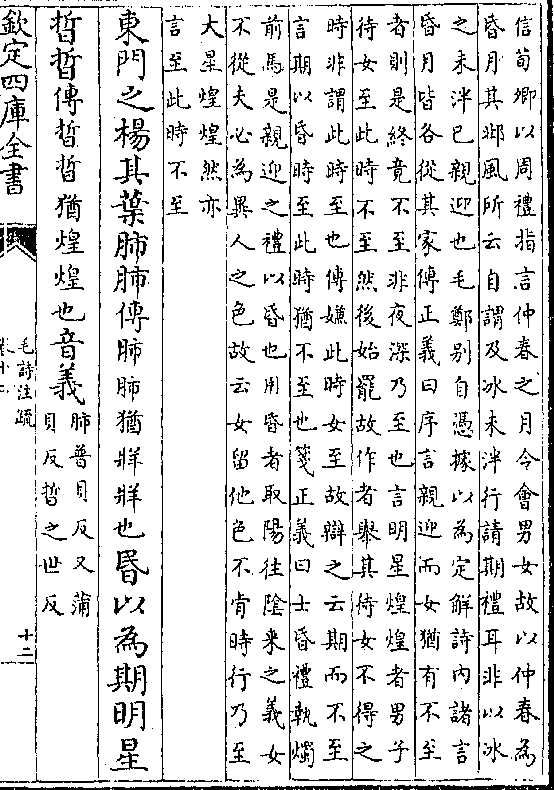 信荀卿以周禮指言仲春之月令㑹男女故以仲春為
昏月其邶風所云自謂及冰未泮行請期禮耳非以冰
之未泮已親迎也毛鄭别自憑據以為定解詩内諸言
昏月皆各從其家傳正義曰序言親迎而女猶有不至
者則是終竟不至非夜深乃至也言明星煌煌者男子
待女至此時不至然後始罷故作者舉其待女不得之
時非謂此時至也傳嫌此時女至故辯之云期而不至
言期以昏時至此時猶不至也箋正義曰士昏禮執燭
前馬是親迎之禮以昏也用昏者取陽往陰來之義女
不從夫必為異人之色故云女留他色不肯時行乃至
大星煌煌然亦
言至此時不至
東門之楊其葉肺肺傳肺肺猶牂牂也昏以為期明星
晢晢傳晢晢猶煌煌也音義
肺普貝反又蒲
貝反晢之世反
欽定四庫全書
毛詩注疏
十二